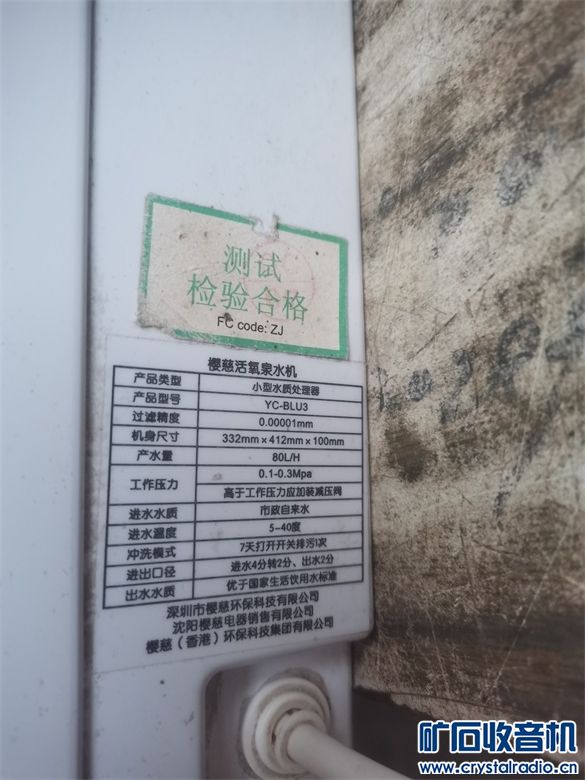 测试
检验合格
FC code: ZJ
樱慈活氧泉水机
产品类型 小型水质处理器
产品型号 YC-BLU3
过滤精度 0.00001mm
机身尺寸 332mm×412mm×100mm
产水量 80L/H
工作压力 0.1-0.3Mpa
高于工作压力应加装减压阀
进水水质 市政自来水
进水温度 5-40度
冲洗模式 7天打开开关排污1次
进出口径 进水4分转2分、出水2分
出水水质 优于国家生活饮用水标准
深圳市樱慈环保科技有限公司
沈阳樱慈电器销售有限公司
樱慈（香港）环保科技集团有限公司
矿石收音机
www.crystalradio.cn